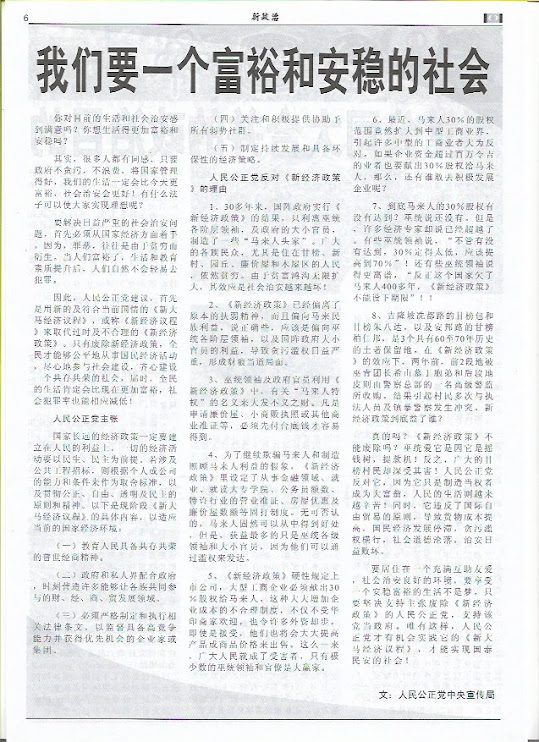 6
新政治
我们要一个富裕和安稳的社会
你对目前的生活和社会治安感
到满意吗？你想生活得更加富裕和
安稳吗？
其实，很多人都有同感，只要
政府不贪污，不浪费，将国家管理
得好，我们的生活一定会比今天更
富裕，社会治安会更好！有什么法
子可以使大家实现理想呢？
要解决目前严重的社会治安问
题，首先必须从国家经济方面着手
。因为，罪恶，往往是由于贫穷而
衍生，当人们富裕了，生活和教育
素质提升后，人们自然不会轻易去
犯罪。
因此，人民公正党建议，首先
是用新的及符合当前国情的《新大
马经济议程》，或称《新经济议程
》来取代过时及不合理的《新经济
政策》。只有废除新经济政策，全
民才能够公平地从事国民经济活动
，尽心地参与社会建设，齐心建设
一个共存共荣的社会。届时，全民
的生活肯定会比现在更加富裕，社
会犯罪率也能相应减低！
人民公正党主张
国家长远的经济政策一定要建
立在人民的利益上，一切的经济活
动要以民生、民主为前提。若涉及
公共工程招标，则根据个人或公司
的能力和条件来作为取舍标准，以
及贯彻公正、自由、透明及民主的
原则和精神。以下是现阶段《新大
马经济议程》的具体内容，以适应
当前的国家经济环境。
（一）教育人民具备共存共荣
的普世经商精神。
（二）政府和私人界配合政府
，时刻营造许多能够让各族共同参
与的财、经、商、贸发展领域。
（三）必须严格制定和执行相
关法律条文，以监督具备高竞争
能力并获得优先机会的企业家或
集团。
（四）关注和积极提供协助予
所有弱势社群。
（五）制定持续发展和具备环
保性的经济策略。
人民公正党反对《新经济政策
》的理由
1、30多年来，国阵政府实行《
新经济政策》的结果，只利惠巫统
各阶层领袖，及政府的大小官员，
制造了一些“马来人头家”。广大
的各族民众，尤其是住在甘榜、新
村、园丘、廉价屋和木屋区的人民
，依然贫穷。由于贫富鸿沟无限扩
大，其效应是社会治安越来越坏！
2、《新经济政策》已经偏离了
原本的扶弱精神，而且偏向马来民
族利益，说正确些，应该是偏向巫
统各阶层领袖，以及国阵政府大小
官员的利益，导致贪污滥权日益严
重，形成财狼当道局面。
3、巫统领袖及政府官员利用《
新经济政策》中，有关“马来人特
权”的名义来大发不义之财。凡是
申请廉价屋、小商贩执照或其他商
业准证等，必须先付台底钱才容易
得到。
4、为了继续欺骗马来人和制造
照顾马来人利益的假象，《新经济
政策》里设定了从事金融领域、就
业、就读大专学院、公务员额数、
特许行业的营业准证、房屋优惠及
廉价屋数额等固打制度。无可否认
的，马来人固然可以从中得到好处
，但是，获益最多的只是巫统各级
领袖和大小官员，因为他们可以通
过滥权来发达。
5、《新经济政策》硬性规定上
市公司，大型工商企业必须献出30
%股权给马来人，这种大大增加企
业成本的不合理制度，不仅不受华
印商家欢迎，也令许多外资却步。
即使是接受，他们也将会大大提高
产品或商品价格来出售，这么一来
，广大人民就成了受害者，只有极
少数的巫统领袖和官僚是大赢家。
6、最近，马来人30%的股权
范围竟然扩大到中型工商业界，
引起许多中型的工商业者大为反
对，如果企业资金超过百万令吉
的业者也要献出30%股权给马来
人，那么，还有谁敢去积极发展
企业呢？
7、到底马来人的30%股权有
没有达到？巫统说还没有，但是
，许多经济专家却说已经超越了
。有些巫统领袖说，“不管有没
有达到，30%定得太低，应该提
高到70%”！还有些巫统领袖说
得更离谱，“反正这个国家欠了
马来人400多年，《新经济政策》
不能设下期限”！！
8、吉隆坡泷都路的目榜包和
目榜朱八达，以及安邦路的甘榜
柏仁邦，是3个共有60至70年历史
的土者保留地，在《新经济政策
》的效应下，两年前，前2段地被
巫青团长希山慕丁股弟和后段地
皮则由警察总部的一名高级警监
所收购，结果引起村民多次与执
法人员及镇暴警察发生冲突。新
经济政策到底益了谁？
真的吗？《新经济政策》不
能废除吗？巫统爱它是因它是摇
钱树，提款机！反之，广大的甘
榜村民却深受其害！人民公正党
反对它，因为它只是制造当权者
成为大富翁，人民的生活则越来
越辛苦！同时，它违反了国际自
由贸易的原则，导致货物成本提
高，国民经济发展停滞，贪污滥
权横行，社会道德沦落，治安日
益败坏。
要居住在一个充满互助友爱
，社会治安良好的环境，要享受
一个安稳富裕的生活不是梦，只
要坚决支持主张废除《新经济
政策》的人民公正党，支持该
党当政府，唯有这样，人民公
正党才有机会实践它的《新大
马经济议程》，才能实现国泰
民安的社会！
文：人民公正党中央宣传局